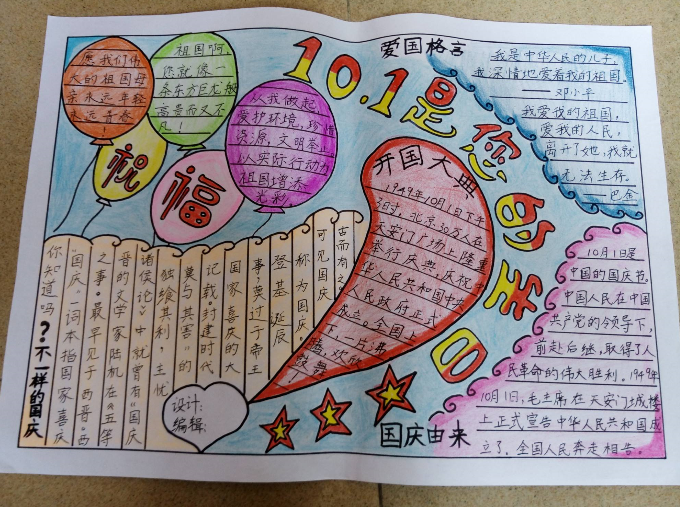 10.1是您的生日
愿我们伟
大的祖国母
亲永远年轻
永远青春
!
祖国啊,
您就像一
条东方巨龙般
高贵而又不
凡!
祝
福
从我做起,
爱护环境,珍惜
资源,文明举止
以实际行动为
祖国增添
光彩
爱国格言
我是中华人民的儿子,
我深情地爱着我的祖国。
——邓小平
我爱我的祖国,
爱我的人民,
离开了她,我就
无法生存。
——巴金
开国大典
1949年10月1日下午
3时,北京30万人在
天安门广场上隆重
举行庆典,庆祝中
华人民共和国中央
人民政府正式
成立。全国上
下,一片沸
腾,欢欣
鼓舞!
10月1日是
中国的国庆节。
中国人民在中国
共产党的领导下,
前赴后继,取得了人
民革命的伟大胜利。1949年
10月1日,毛主席在天安门城楼
上正式宣告中华人民共和国成
立了。全国人民奔走相告。
国庆由来
你知道吗?不一样的国庆
“国庆”一词本指国家喜庆
之事。最早见于西晋。西
晋的文学家陆机在《五等
诸侯论》中就曾有“国庆
独飨其利,主忧
莫与其害”的
记载封建时代
国家喜庆的大
事莫过于帝王
登基诞辰
称为国庆。
可见国庆
古而有之
设计:
编辑: